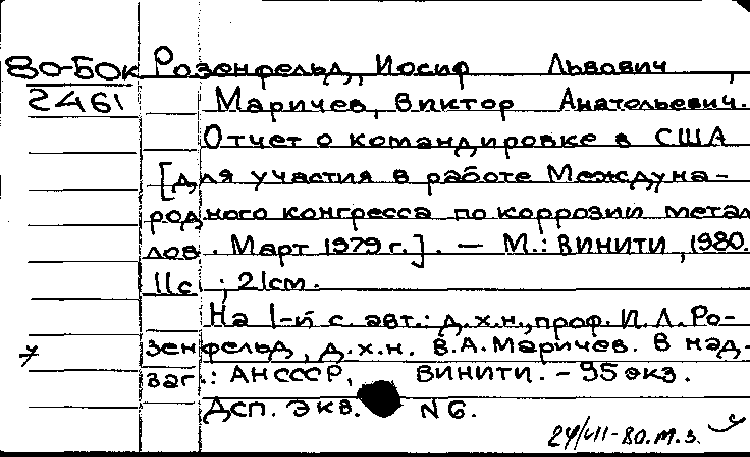 80-БОК Розенфельд, Иосиф Львович,
2461 Маричев, Виктор Анатольевич.
Отчет о командировке в США
[для участия в работе Междуна-
родного конгресса по коррозии метал
лов. Март 1979 г.]. — М.: ВИНИТИ, 1980.
11с.; 21см.
На 1-й с. авт.: д.х.н., проф. И.Л.Ро-
зенфельд, д.х.н. В.А.Маричев. В над-
заг.: АН СССР, ВИНИТИ. — 95 экз.
Дсп. Экз. N 6.
24/VII-80. М.З.